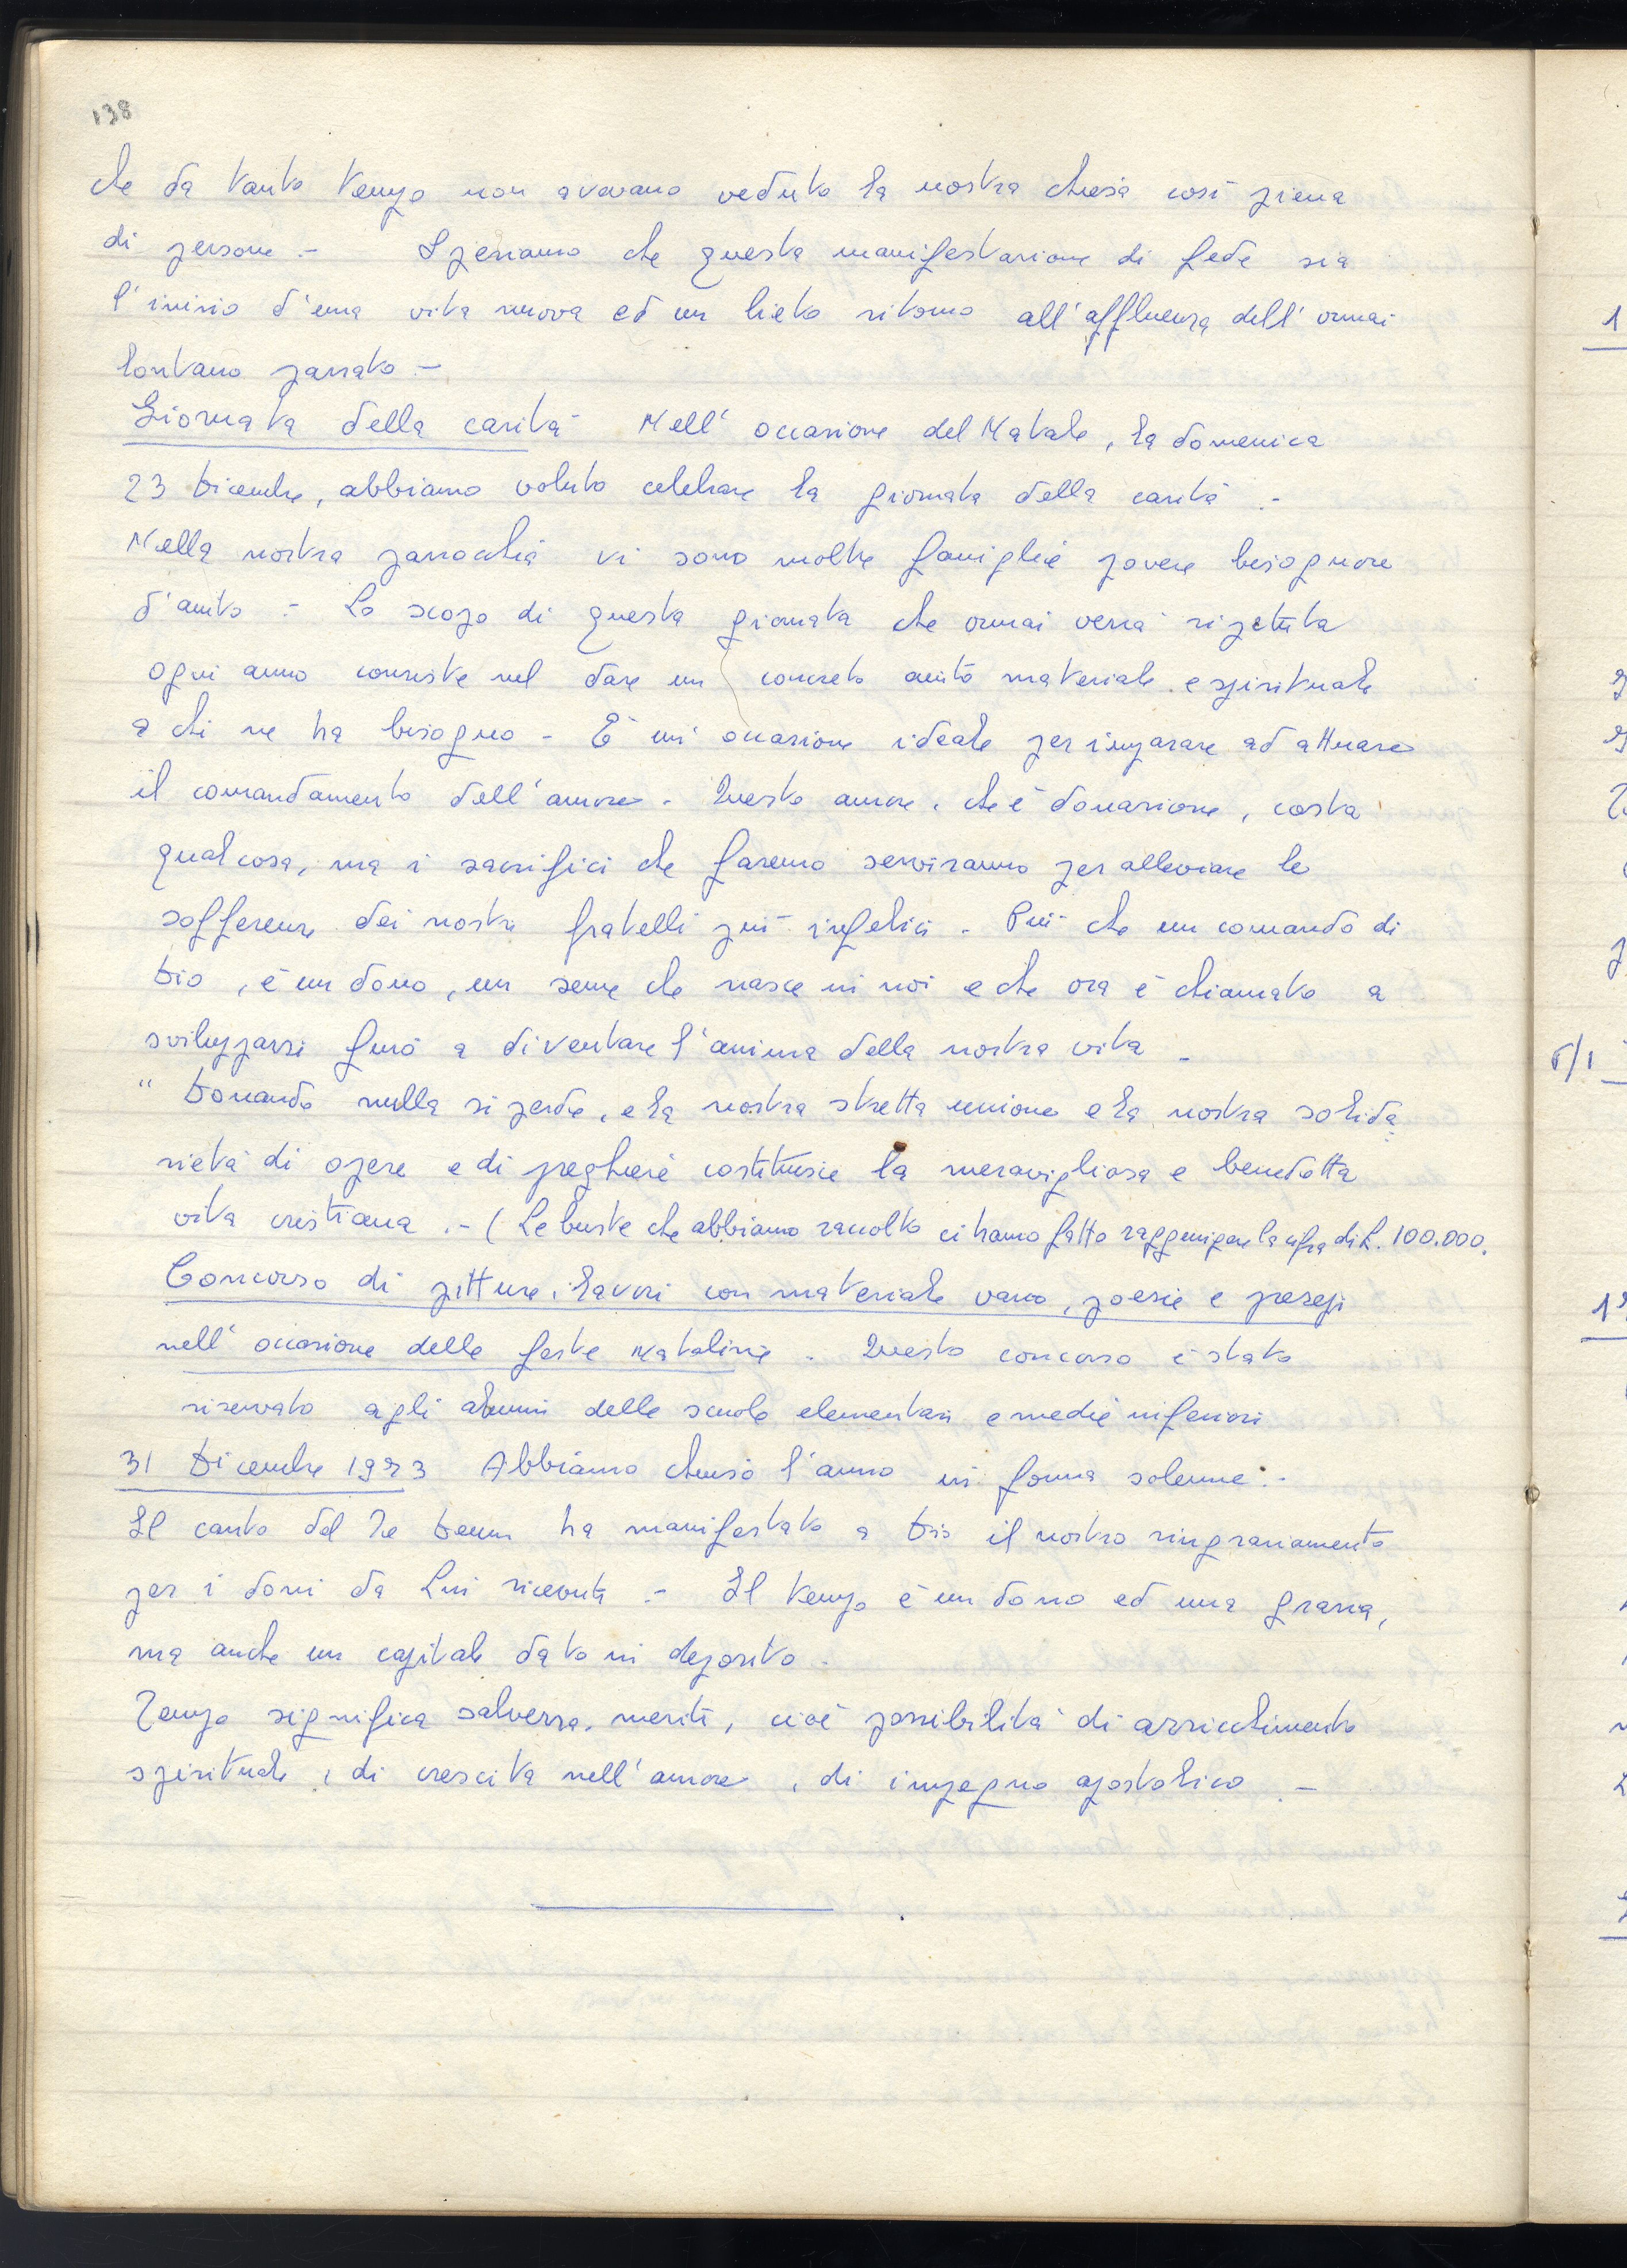 138
che da tanto tempo non avevano veduto la nostra chiesa così piena
di persone.- Speriamo che questa manifestazione di fede sia
l'inizio d'una vita nuova ed un lieto ritorno all'affluenza dell'ormai
lontano passato.-
Giornata della carità Nell'occasione del Natale, la domenica
23 Dicembre, abbiamo voluto celebrare la giornata della carità.-
Nella nostra parrocchia vi sono molte famiglie povere bisognose
d'aiuto.- Lo scopo di questa giornata che ormai verrà ripetuta
ogni anno consiste nel dare un concreto aiuto materiale e spirituale
a chi ne ha bisogno - È un'occasione ideale per imparare ad attuare
il comandamento dell'amore. Questo amore, che è donazione, costa
qualcosa, ma i sacrifici che faremo serviranno per alleviare le
sofferenze dei nostri fratelli più infelici - Più che un comando di
Dio, è un dono, un seme che nasce in noi e che ora è chiamato a
svilupparsi fino a diventare l'anima della nostra vita -
"Donando nulla si perde, e la nostra stretta unione e la nostra solida
rietà di opere e di preghiere costituisce la meravigliosa e benedetta
vita cristiana.- (Le buste che abbiamo raccolto ci hanno fatto raggiungere la cifra di L. 100.000.
Concorso di pitture, lavori con materiale vario, poesie e presepi
nell'occasione delle feste Natalizie. Questo concorso è stato
riservato agli alunni delle scuole elementari e medie inferiori
31 Dicembre 1973 Abbiamo chiuso l'anno in forma solenne.-
Il canto del Te Deum ha manifestato a Dio il nostro ringraziamento
per i doni da Lui ricevuti.- Il tempo è un dono ed una grazia,
ma anche un capitale dato in deposito -
Tempo significa salvezza, meriti, cioè possibilità di arricchimento
spirituale, di crescita nell'amore, di impegno apostolico.-
1
6/1